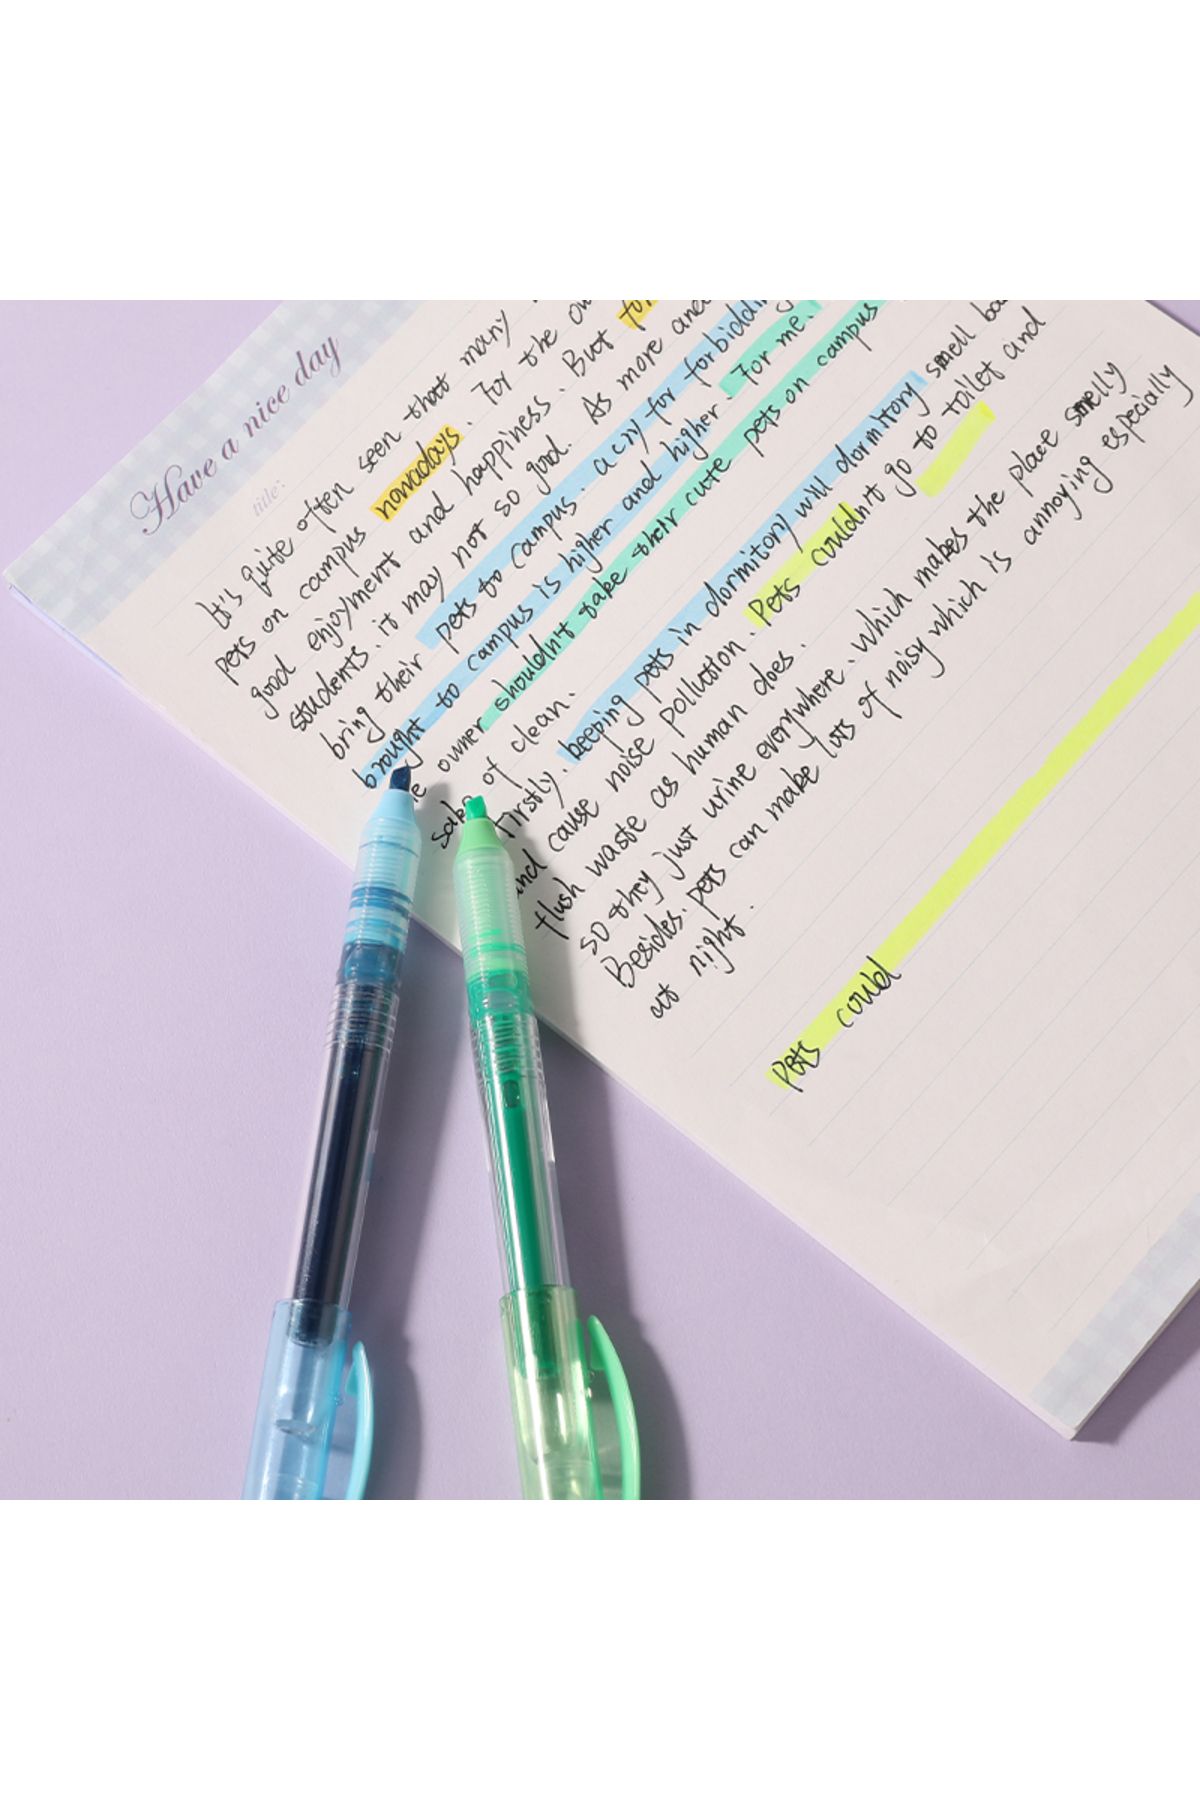 Have a nice day
title:
It's quite often seen that many
pets on campus nowadays. For the
good enjoyment and happiness. But
students. it may not so good. As more and
bring their pets to campus. a cry for forbidding
brought to campus is higher and higher. For me.
owner shouldn't take their cute pets on campus
sake of clean.
Firstly. keeping pets in dormitory will dormitory smell
and cause noise pollution. Pets couldn't go to toilet and
flush waste as human does.
so they just urine everywhere. which makes the place smelly
Besides. pets can make lots of noisy which is annoying especially
at night.
Pets could